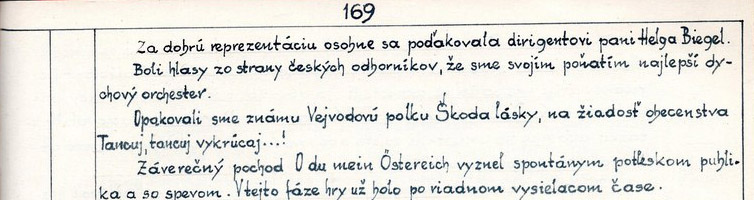 169
Za dobrú reprezentáciu osobne sa poďakovala dirigentovi pani Helga Biegel.
Boli hlasy zo strany českých odborníkov, že sme svojím poňatím najlepší dy-
chový orchester.
Opakovali sme známu Vejvodovú polku Škoda lásky, na žiadosť obecenstva
Tancuj, tancuj vykrúcaj...!
Záverečný pochod O du mein Östereich vyznel spontánym potleskom publi-
ka a so spevom. V tejto fáze hry už bolo po riadnom vysielacom čase.